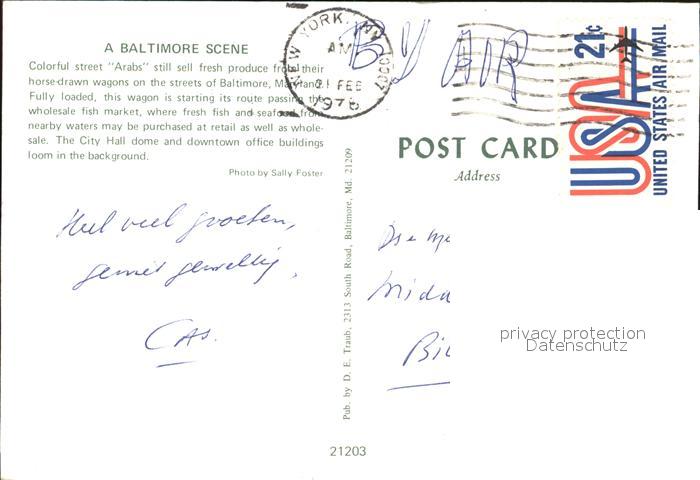 A BALTIMORE SCENE
Colorful street "Arabs" still sell fresh produce from their
horse-drawn wagons on the streets of Baltimore, Maryland.
Fully loaded, this wagon is starting its route passing the
wholesale fish market, where fresh fish and seafood from
nearby waters may be purchased at retail as well as whole-
sale. The City Hall dome and downtown office buildings
loom in the background.
Photo by Sally Foster
NEW YORK, NY
AM
21 FEB
197
BY AIR
21c
USA
UNITED STATES AIR MAIL
POST CARD
Address
Heel veel groeten,
geniet geweldig,
Cas.
Pub. by D. E. Traub, 2313 South Road, Baltimore, Md. 21209
Bil
privacy protection
Datenschutz
21203